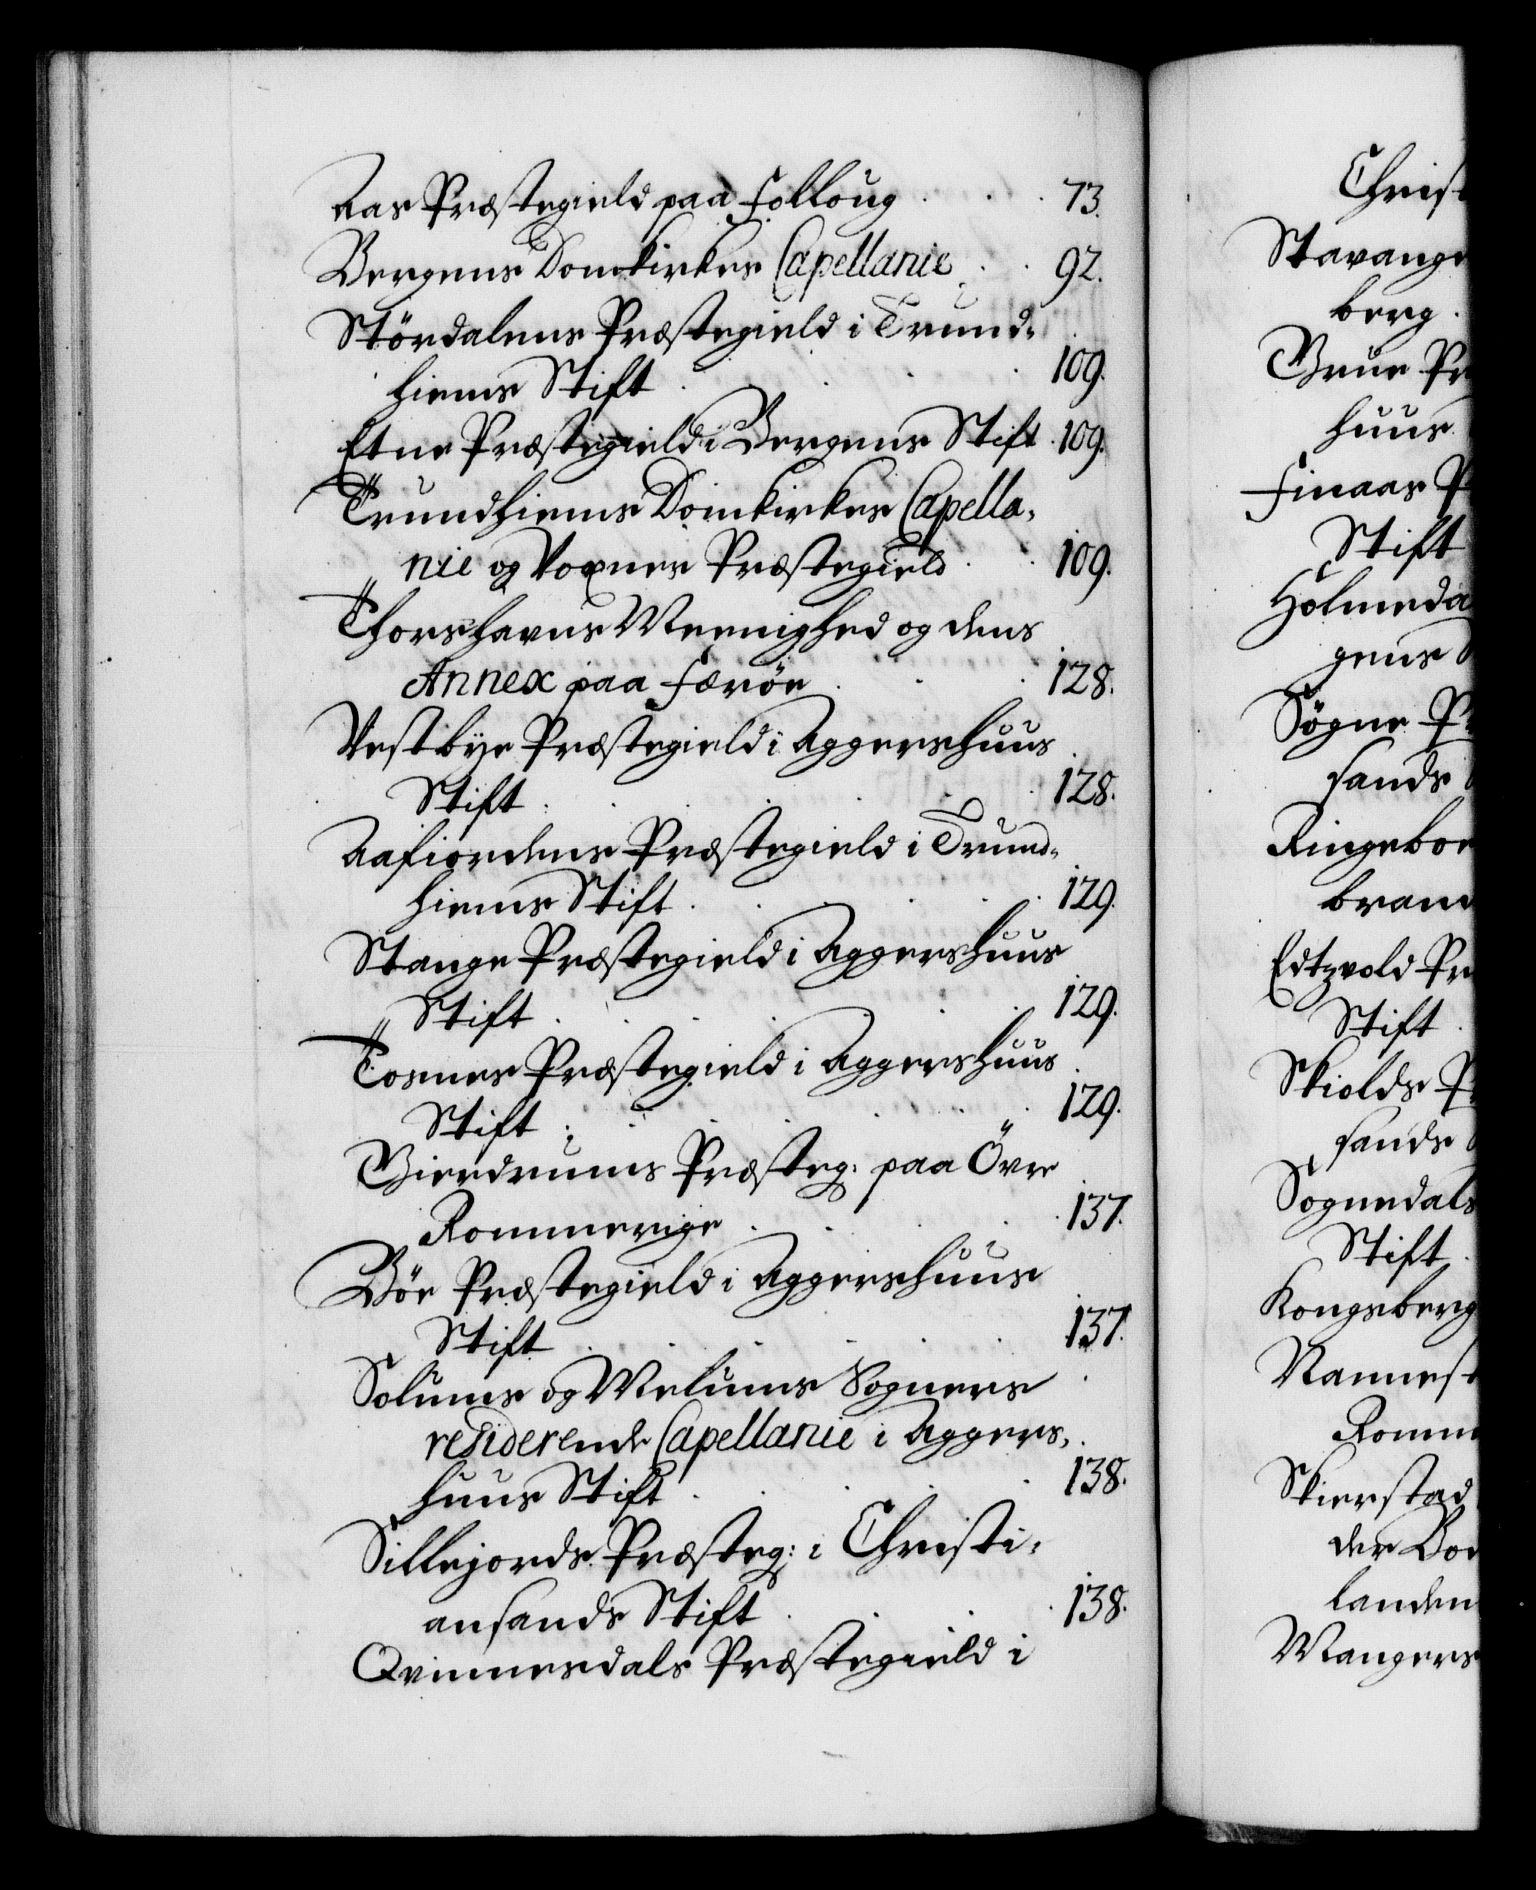 Aas Præstegield paa Folloug . . . 73.
Bergens Domkirkes Capellanie . . 92.
Stördalens Præstegield i Trund-
hiems Stift . . . . 109.
Etne Præstegield i Bergens Stift . 109.
Trundhiems Domkirkes Capella-
nie og Præstegield . . 109.
Thorshavns Meenighed og dens
Annex paa Færöe . . . 128.
Vestbye Præstegield i Aggershuus
Stift . . . . . 128.
Aafiordens Præstegield i Trund-
hiems Stift . . . . 129.
Stange Præstegield i Aggershuus
Stift . . . . . 129.
Præstegield i Aggershuus
Stift . . . . . 129.
Gierdrums Præsteg: paa Övre
Rommerige . . . . 137.
Böe Præstegield i Aggershuus
Stift . . . . . 137.
Solums og Melums Sogners
residerende Capellanie i Aggers-
huus Stift . . . . 138.
Sillejords Præsteg: i Christi-
ansands Stift . . . 138.
Qvinnesdals Præstegield i
Christ
Stavange
berg .
Grue Pr
huus
Finaas P
Stift
Holmeda
gens S
Sögne Pr
sands S
Ringeboe
brand
Edtzvold Pr
Stift .
Skiolds Pr
sands S
Sognedals
Stift .
Kongsberg
Nannest
Romm
Skierstad
der Bo
landen
Mangers